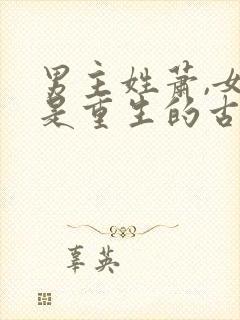 男主姓萧,女
是重生的古
辜英